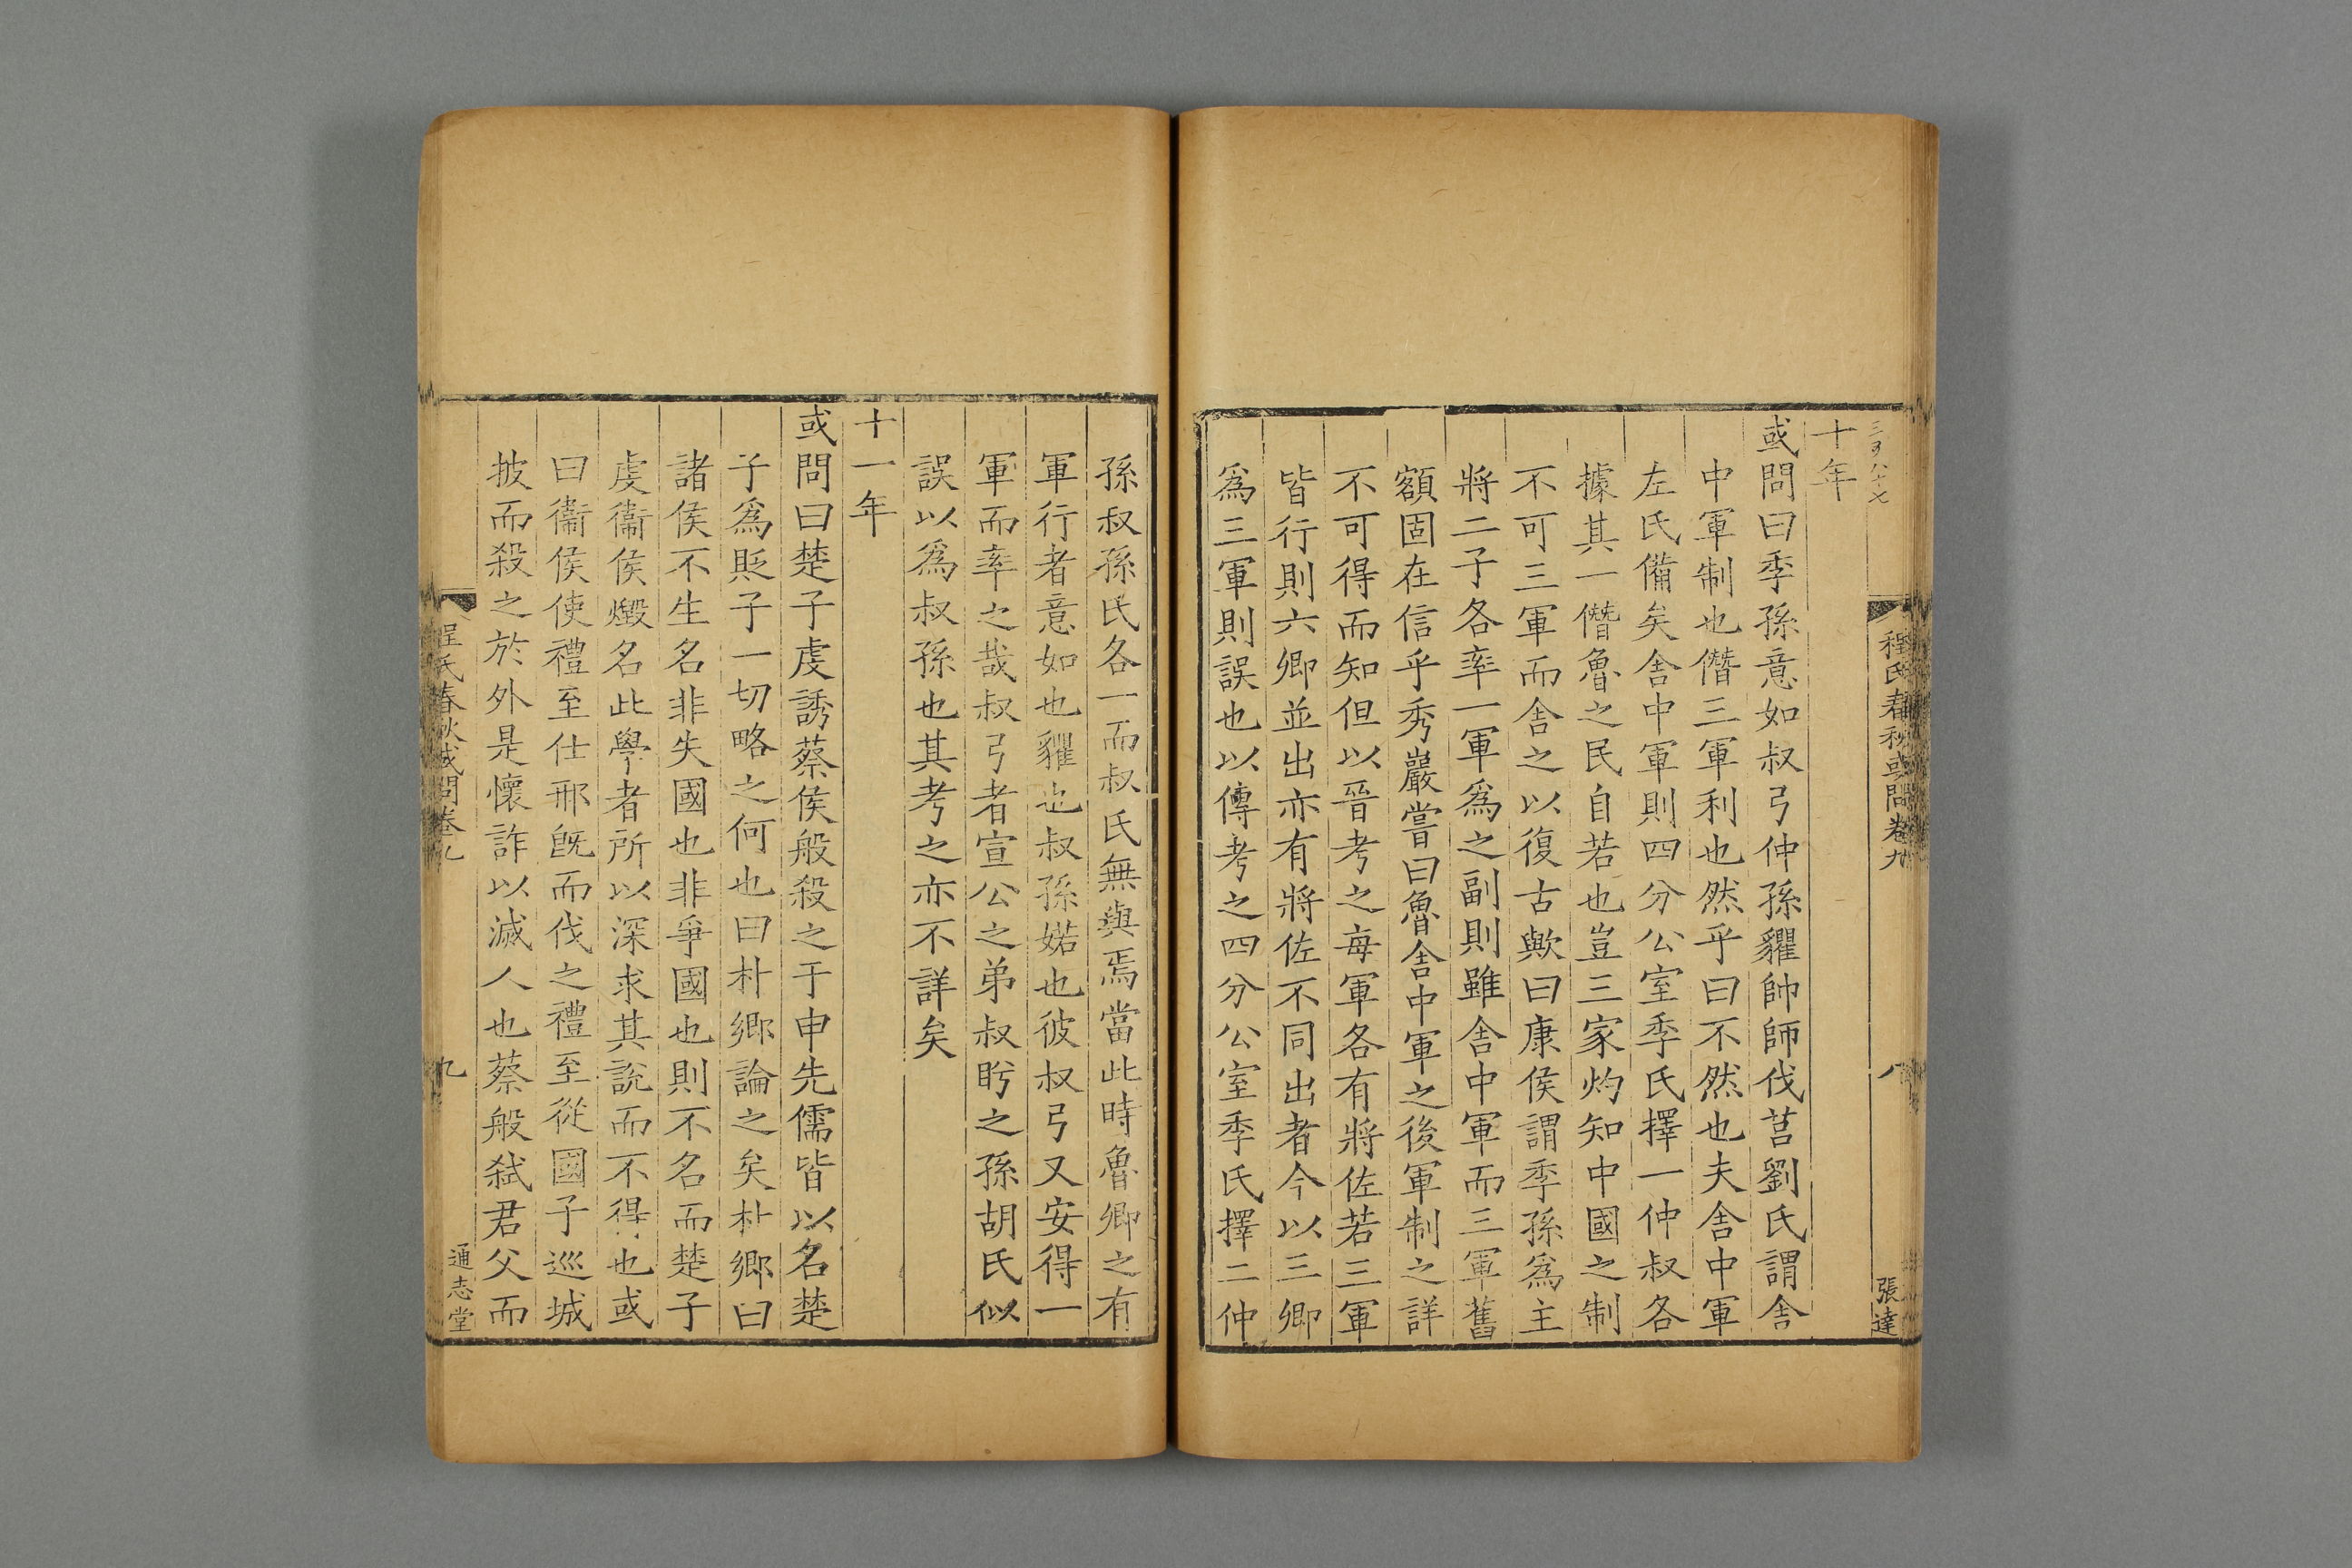 三百八十七
程氏春秋或問卷九
八
張達
十年
或問曰季孫意如叔弓仲孫貜帥師伐莒劉氏謂舍
中軍制也僭三軍利也然乎曰不然也夫舍中軍
左氏備矣舍中軍則四分公室季氏擇一仲叔各
據其一僭魯之民自若也豈三家灼知中國之制
不可三軍而舍之以復古歟曰康侯謂季孫為主
將二子各率一軍為之副則雖舍中軍而三軍舊
額固在信乎秀巖嘗曰魯舍中軍之後軍制之詳
不可得而知但以晉考之每軍各有將佐若三軍
皆行則六卿並出亦有將佐不同出者今以三卿
為三軍則誤也以傳考之四分公室季氏擇二仲
孫叔孫氏各一而叔氏無與焉當此時魯卿之有
軍行者意如也貜也叔孫婼也彼叔弓又安得一
軍而率之哉叔弓者宣公之弟叔肸之孫胡氏似
誤以為叔孫也其考之亦不詳矣
十一年
或問曰楚子虔誘蔡侯般殺之于申先儒皆以名楚
子為貶子一切略之何也曰朴鄉論之矣朴鄉曰
諸侯不生名非失國也非爭國也則不名而楚子
虔衞侯燬名此學者所以深求其說而不得也或
曰衞侯使禮至仕邢旣而伐之禮至從國子巡城
披而殺之於外是懷詐以滅人也蔡般弒君父而
程氏春秋或問卷九
九
通志堂